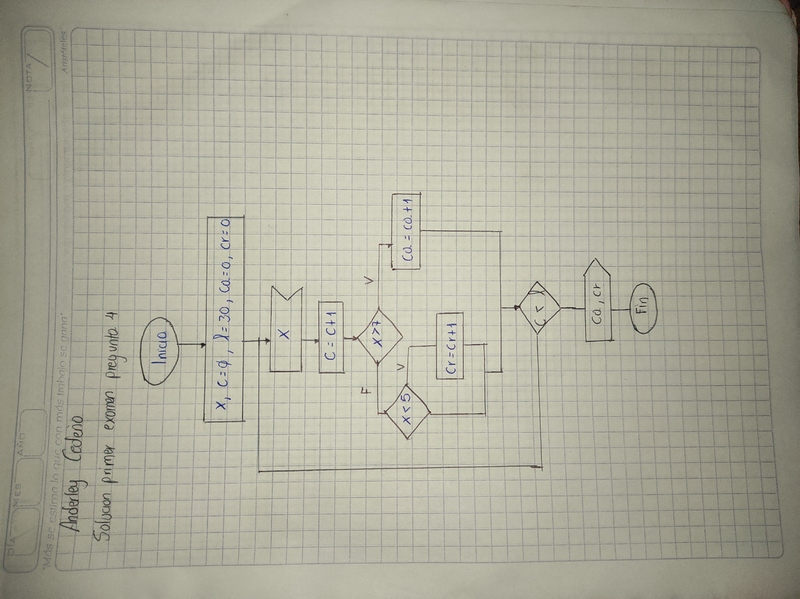 DÍA
MES
AÑO
NOTA
"Más se estima lo que con más trabajo se gana"
Aristóteles
Anderley Cedeño
Solucion primer examen pregunta 4
Inicio
x, C=φ, l=30, Ca=0, Cr=0
X
C = C+1
X>7
F
V
X<5
V
Ca = Ca+1
Cr=Cr+1
C < l
Ca, Cr
Fin